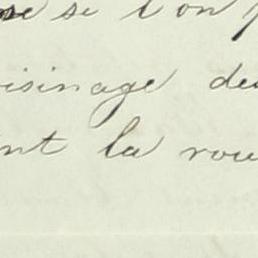 se si l'on p
oisinage de
ent la rou